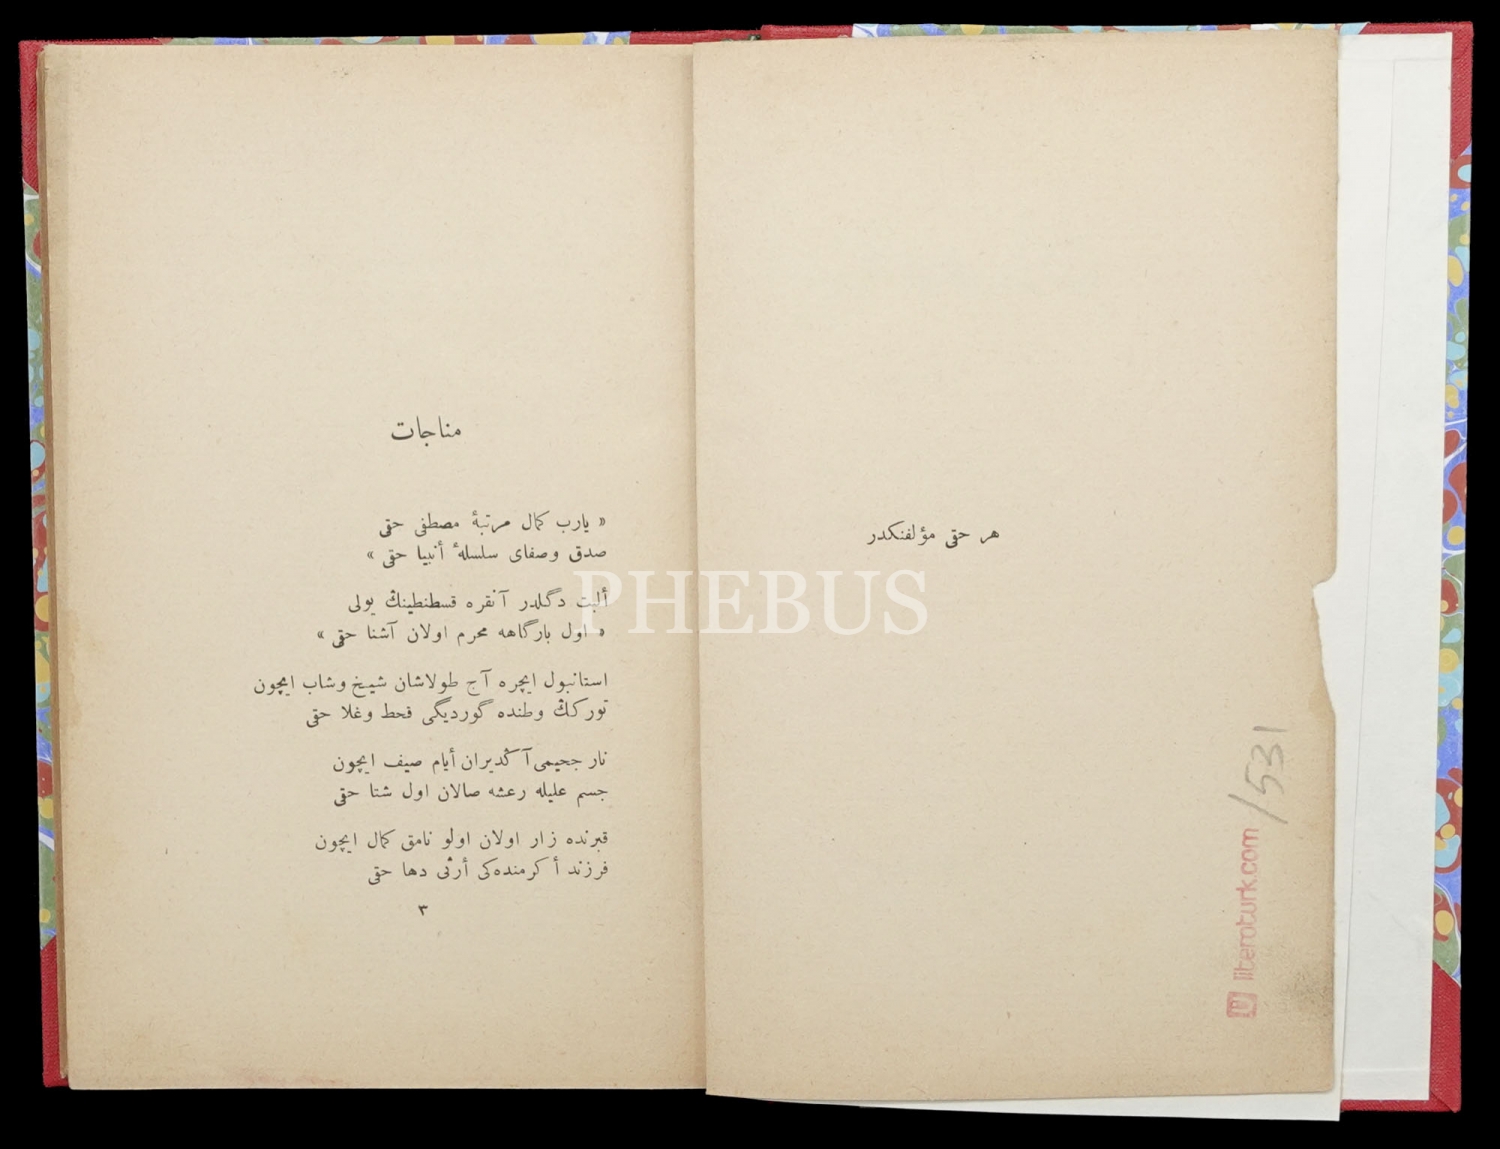 هر حقی مؤلفنكدر
مناجات
« يارب كمال مرتبهٔ مصطفی حقی
صدق وصفای سلسلهٔ أنبيا حقی »
ألبت دگلدر آنقره قسطنطينڭ يولی
« اول بارگاهه محرم اولان آشنا حقی »
استانبول ايچره آج طولاشان شيخ وشاب ايچون
توركڭ وطنده گورديگی قحط وغلا حقی
نار جحيمی آڭديران أيام صيف ايچون
جسم عليله رعشه صالان اول شتا حقی
قبرنده زار اولان اولو نامق كمال ايچون
فرزند أكرمنده‌كی أرثی دها حقی
٣
PHEBUS
literaturk.com
/531